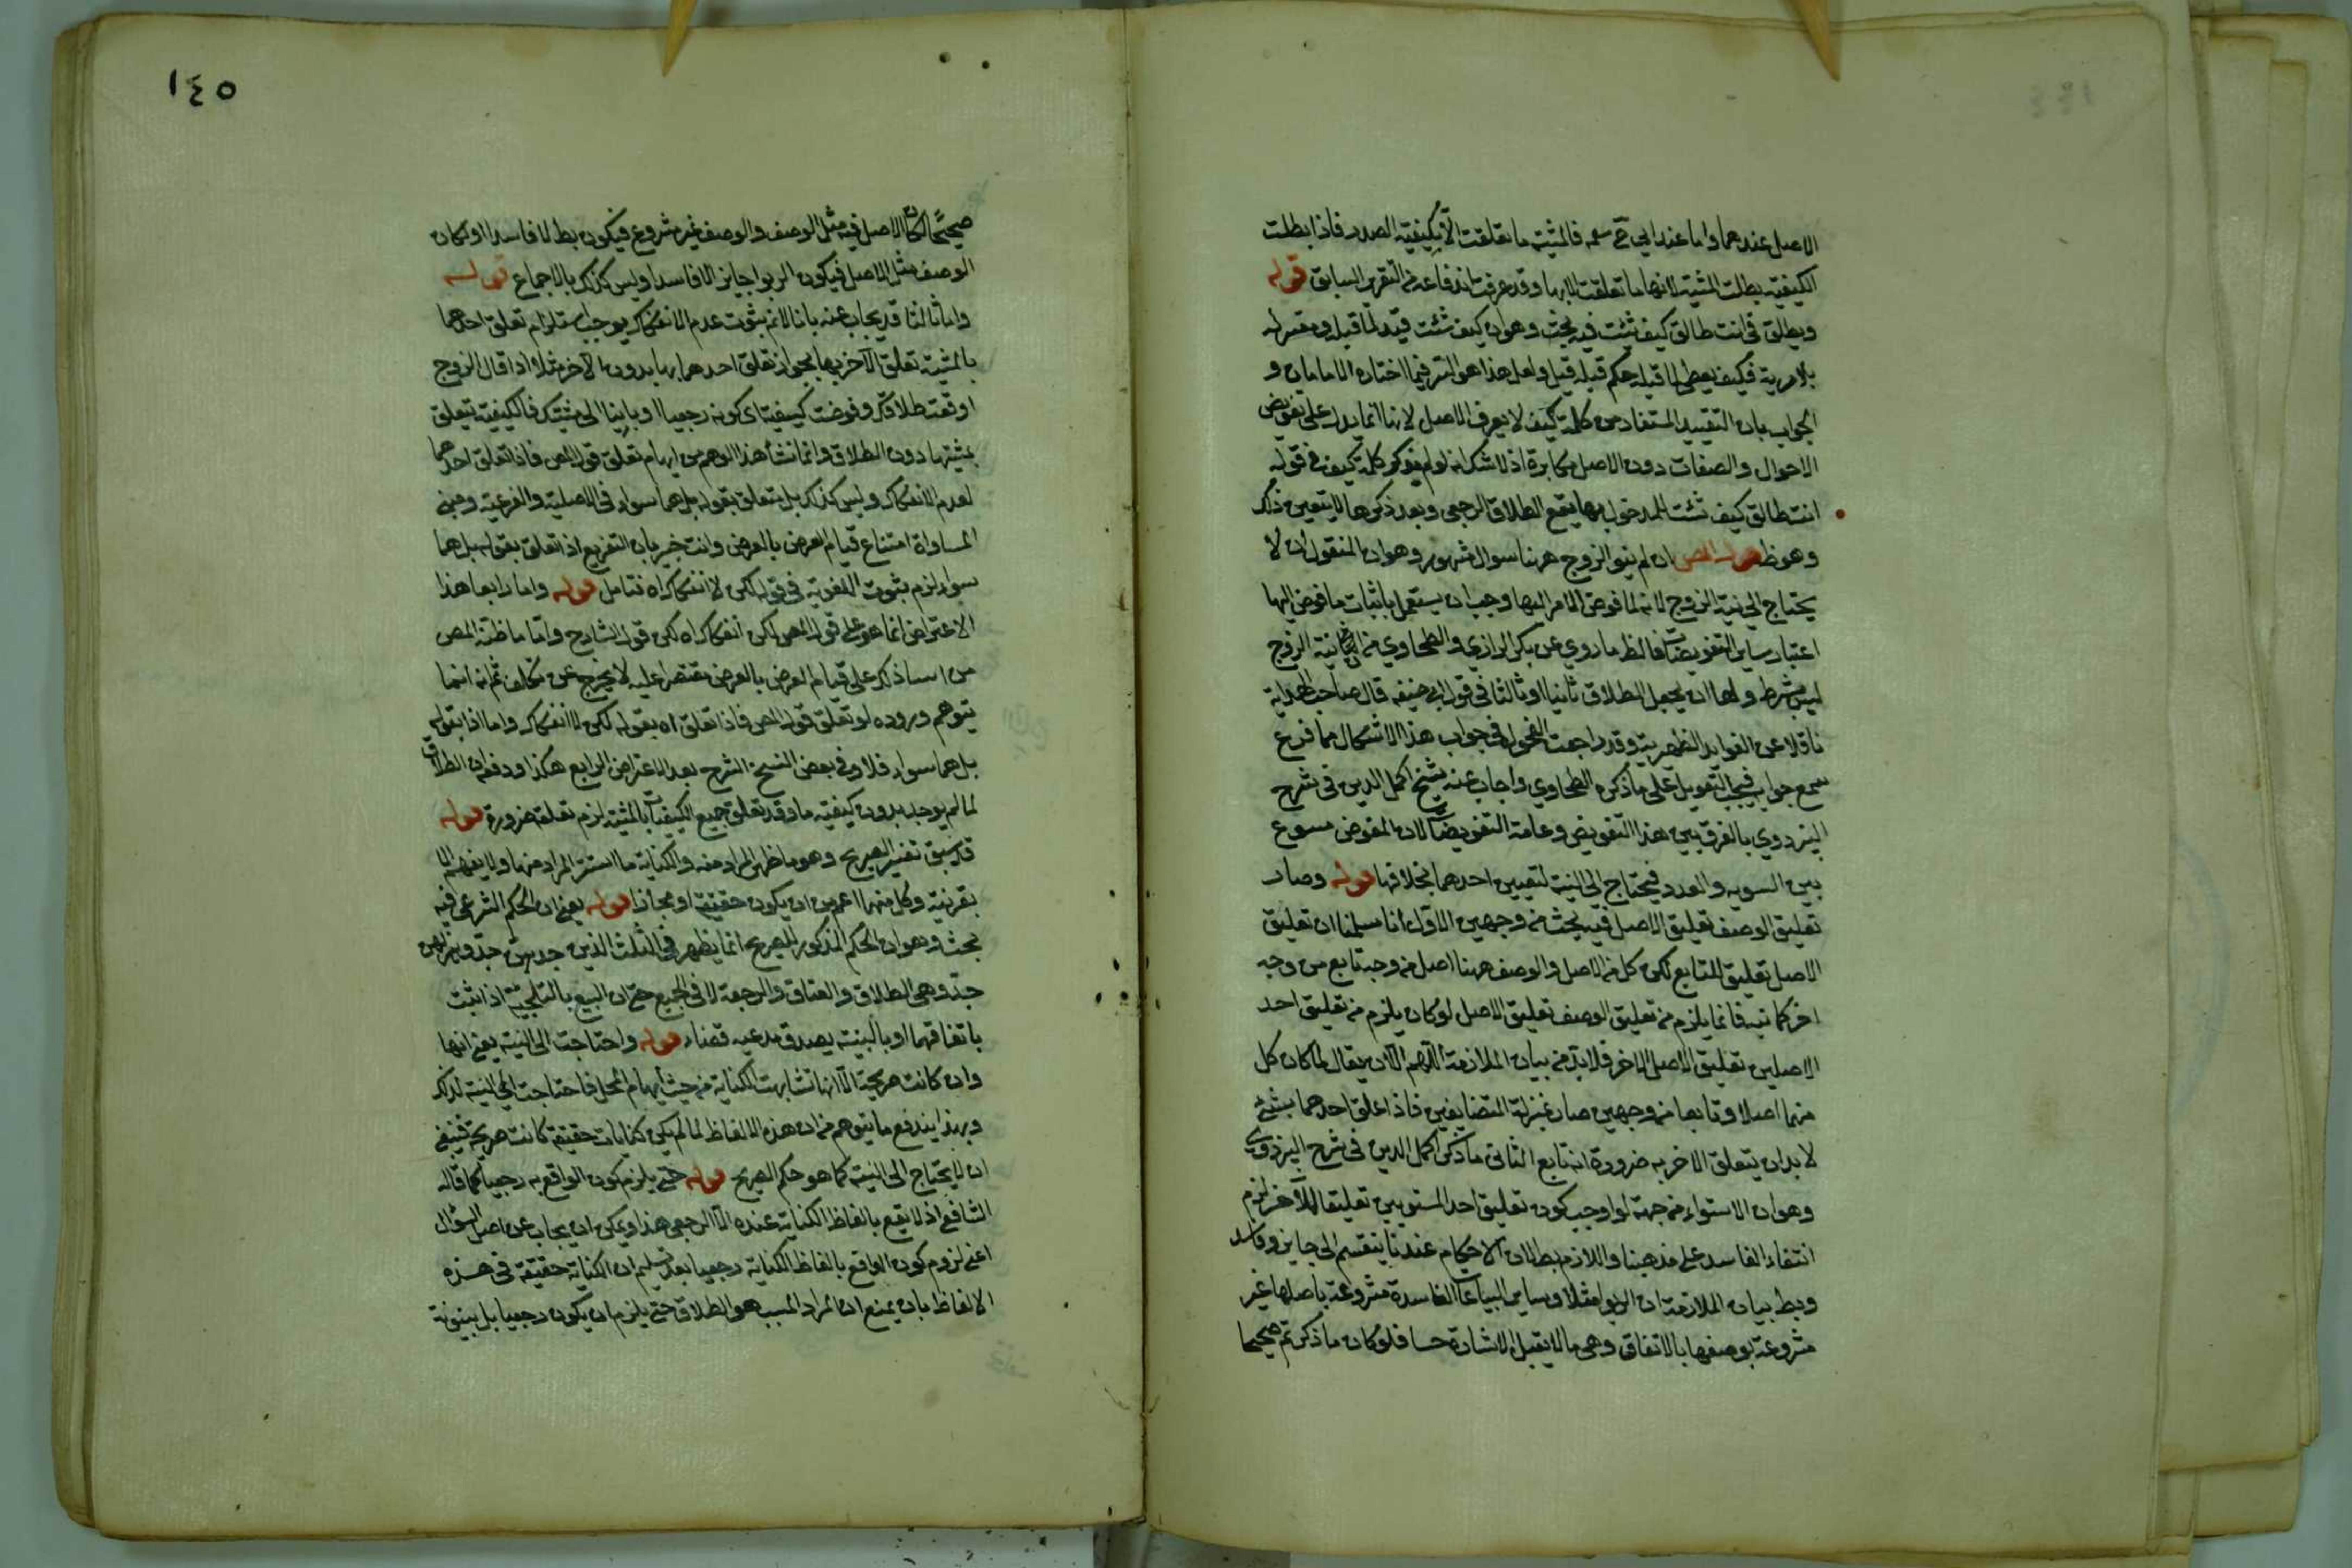 الاصل عندهما واما عند ابي ح سلمه فالمشية ما تعلقت الا بكيفية الصدر فاذا بطلت
الكيفية بطلت المشية لانها ما تعلقت الا بها وقد عرفت اندفاعه من التقرير السابق قوله
ويطلق في انت طالق كيف شئت فيه بحث وهو ان كيف شئت قيد لما قبله ومغير له
بلا مرية فكيف يعطى لما قبله حكم قبله قيل ولعل هذا هو السر فيما اختاره الامامان و
الجواب بان التقييد المستفاد من كلمة كيف لا يعرف الاصل لانها انما يدل على تفويض
الاحوال والصفات دون الاصل مكابرة اذ لا شك انه لو لم يذكر كلمة كيف في قوله
انت طالق كيف شئت للمدخول بها يقع الطلاق الرجعي وبعد ذكرها لا يتعين ذلك
وهو ظ قوله المص ان لم ينو الزوج ههنا سوال مشهور وهو ان المنقول ان لا
يحتاج الى نية الزوج لانه لما فوض الامر اليها وجب ان يستقل باثبات ما فوض اليها
اعتبارا بساير التفويضات فالظ ما روي عن بكر الرازي والطحاوي من ان نية الزوج
ليس بشرط ولها ان يجعل الطلاق ثانيا او ثالثا في قول ابي حنيفه قال صاحب الهداية
ناقلا عن الفوايد الظهيرية وقد راجعت الفحول في جواب هذا الاشكال مما قرع
سمع جواب فيجب التعويل على ما ذكره الطحاوي واجاب عنه شيخ اكمل الدين في شرح
البزدوي بالفرق بين هذا التفويض وعامة التفويضات لان المفوض متنوع
بين السوية والعدد فيحتاج الى النية لتعيين احدهما بخلافها قوله وصار
تعليق الوصف تعليق الاصل فيه بحث من وجهين الاول انا سلمنا ان تعليق
الاصل تعليق للتابع لكن كل من الاصل والوصف ههنا اصل من وجه تابع من وجه
اخر كما نبه فانما يلزم من تعليق الوصف تعليق الاصل لو كان يلزم من تعليق احد
الاصلين تعليق الاصل الاخر فلا بد من بيان الملازمة اللهم الا ان يقال لما كان كل
منهما اصلا وتابعا من وجهين صار بمنزلة المتضايفين فاذا علق احدهما بشئ
لا بد ان يتعلق الاخر به ضرورة انه تابع الثاني ما ذكر اكمل الدين في شرح البزدوي
وهو ان الاستواء من جهة لو اوجب كون تعليق احد المستويين تعليقا للاخر لزم
انتفاء الفاسد على مذهبنا واللازم بط لان الاحكام عندنا ينقسم الى جايز وفاسد
وبط بيان الملازمة ان الربوا مثلا وساير البياعات الفاسدة مشروعة باصلها غير
مشروعة بوصفها بالاتفاق وهي ما لا يقبل الاشارة حسا فلو كان ما ذكر تم صحيحا
١٤٥
صحيحا لكان الاصل فيه مثل الوصف والوصف غير مشروع فيكون بط لا فاسدا او كان
الوصف مثل الاصل فيكون الربوا جايزا لا فاسدا وليس كذلك بالاجماع قوله
واما ثالثا قد يجاب عنه بانا لا نم بثوت عدم الانفكاك يوجب استلزام تعلق احدهما
بالمشية تعلق الآخر بها بجواز تعلق احدهما بها بدون الآخر مثلا اذا قال الزوج
اوقعت طلاقك وفوضت كيفيته اى كونه رجعيا او باينا الى مشيتك فالكيفية يتعلق
بمشيتها دون الطلاق وانما نشأ هذا الوهم من ايهام تعلق قول المص فاذا تعلق احدهما
لعدم الانفكاك وليس كذلك بل متعلق بقوله بل هما سواء في الاصلية والفرعية ومبنى
المساواة امتناع قيام العرض بالعرض وانت خبير بان التفريع اذا تعلق بقوله بل هما
سواء لزم بثوت اللغوية في قوله لكن لا انفكاك اه فتامل قوله واما رابعا هذا
الاعتراض انما هو على قول المص لكن انفكاك اه لكن قول الشارح واما ما ظنه المص
من اسناد ذكر على قيام العرض بالعرض مقتصرا عليه لا يخرج عن تكلف ثم انه انما
يتوهم وروده لو تعلق قول المص فاذا تعلق اه بقوله لكن لا انفكاك واما اذا بقوله
بل هما سواء فلا وفي بعض النسخ الشرح بعد الاعتراض الرابع هكذا ودفعه ان الطلاق
لما لم يوجد بدون كيفية ما وقد تعلق جميع الكيفيات بالمشية لزم تعلقه ضرورة قوله
قد سبق تفسير الصريح وهو ما ظهر المراد منه والكناية ما استتر المراد منها ولا يفهم الا
بقرينة وكل منهما اعم من ان يكون حقيقة او مجازا قوله يعني ان الحكم الشرعي فيه
بحث وهو ان الحكم المذكور للصريح انما يظهر في الثلث الذين جدهن جد وهزلهن
جد وهي الطلاق والعتاق والرجعة لا في الجميع حتى ان البيع بالتلجية اذا ثبت
باتفاقهما او بالبينة يصدق مدعيه قضاء قوله واحتاجت الى النية يعني انها
وان كانت صريحة الا انها تشابهت الكناية من حيث ايهام المحل فاحتاجت الى النية لذلك
وبهذا يندفع ما يتوهم من ان هذه الالفاظ لما لم يكن كنايات حقيقة كانت صريحة فينبغي
ان لا يحتاج الى النية كما هو حكم الصريح قوله حتى يلزم كون الواقع به رجعيا كما قاله
الشافعي اذ لا يقع بالفاظ الكناية عنده الا الرجعي هذا ويمكن ان يجاب عن اصل السؤال
اعنى لزوم كون الواقع بالفاظ الكناية رجعيا بعد تسليم ان الكناية حقيقة في هذه
الالفاظ بان يمنع ان المراد المسبب هو الطلاق حتى يلزم ان يكون رجعيا بل بينونة